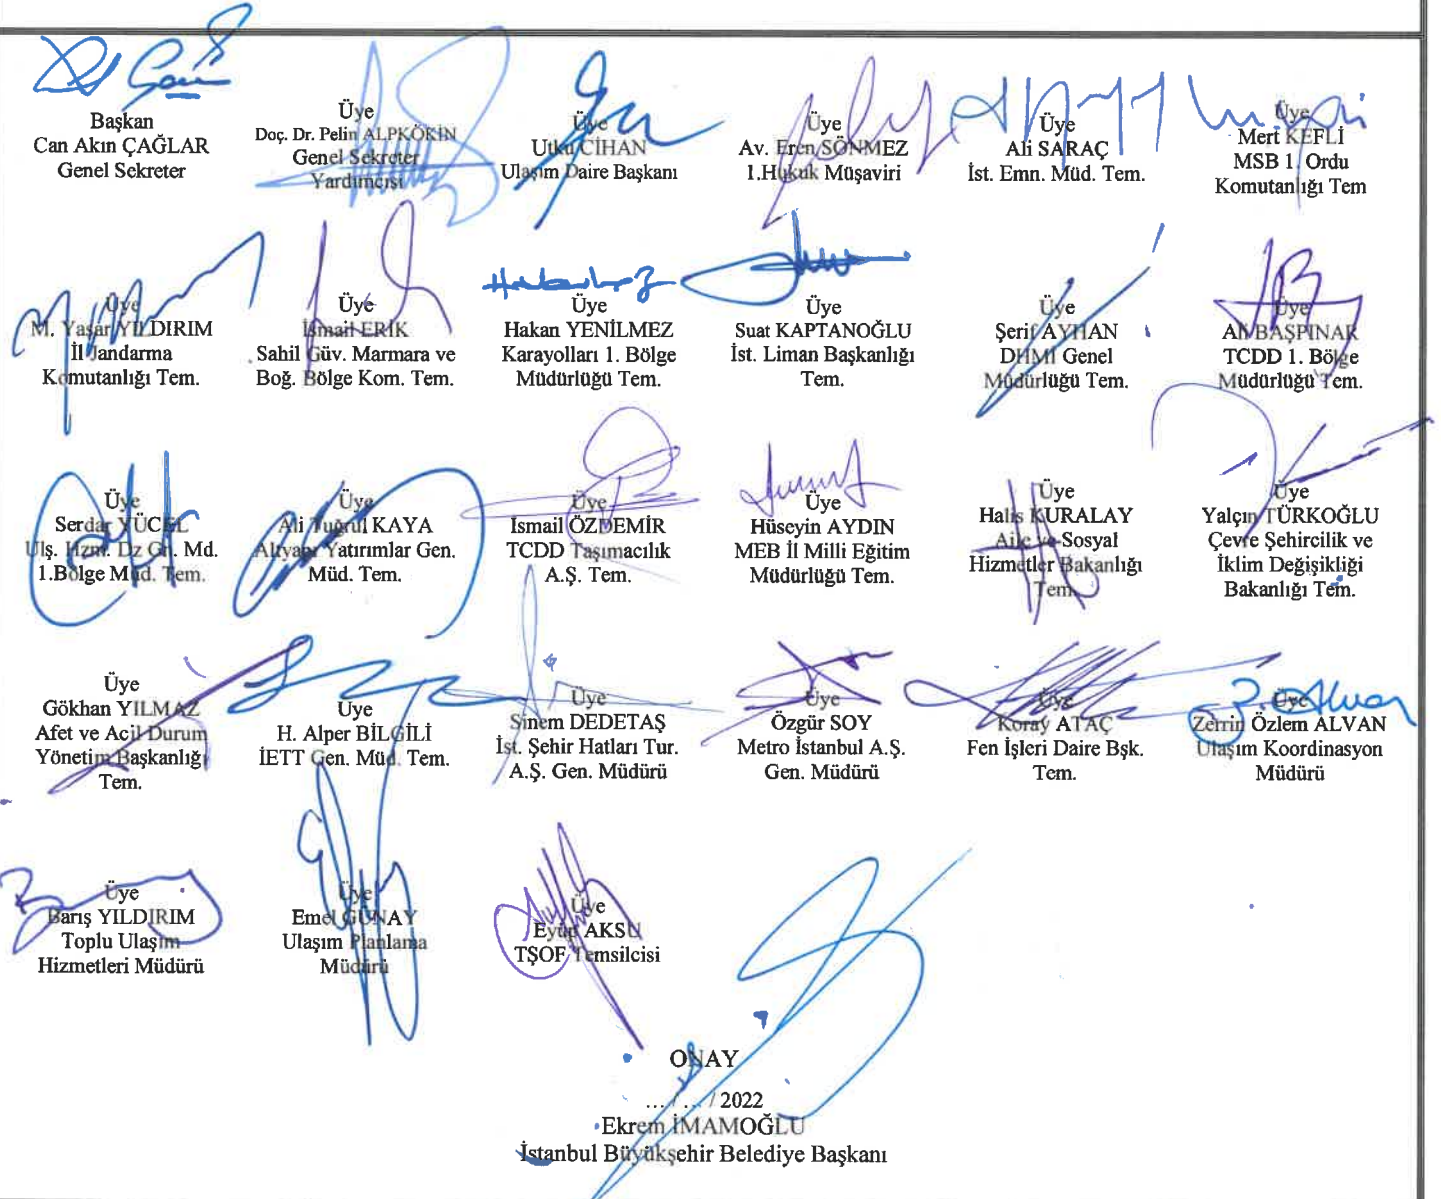 Başkan
Can Akın ÇAĞLAR
Genel Sekreter
Üye
Doç. Dr. Pelin ALPKÖKİN
Genel Sekreter
Yardımcısı
Üye
Utku CİHAN
Ulaşım Daire Başkanı
Üye
Av. Eren SÖNMEZ
1.Hukuk Müşaviri
Üye
Ali SARAÇ
İst. Emn. Müd. Tem.
Üye
Mert KEFLİ
MSB 1. Ordu
Komutanlığı Tem
Üye
M. Yaşar YILDIRIM
İl Jandarma
Komutanlığı Tem.
Üye
İsmail ERİK
Sahil Güv. Marmara ve
Boğ. Bölge Kom. Tem.
Üye
Hakan YENİLMEZ
Karayolları 1. Bölge
Müdürlüğü Tem.
Üye
Suat KAPTANOĞLU
İst. Liman Başkanlığı
Tem.
Üye
Şerif AYHAN
DHMİ Genel
Müdürlüğü Tem.
Üye
Ali BAŞPINAR
TCDD 1. Bölge
Müdürlüğü Tem.
Üye
Serdar YÜCEL
Ulş. Hzm. Dz Gn. Md.
1.Bölge Müd. Tem.
Üye
Ali Tuğrul KAYA
Altyapı Yatırımlar Gen.
Müd. Tem.
Üye
İsmail ÖZDEMİR
TCDD Taşımacılık
A.Ş. Tem.
Üye
Hüseyin AYDIN
MEB İl Milli Eğitim
Müdürlüğü Tem.
Üye
Halis KURALAY
Aile ve Sosyal
Hizmetler Bakanlığı
Tem.
Üye
Yalçın TÜRKOĞLU
Çevre Şehircilik ve
İklim Değişikliği
Bakanlığı Tem.
Üye
Gökhan YILMAZ
Afet ve Acil Durum
Yönetim Başkanlığı
Tem.
Üye
H. Alper BİLGİLİ
İETT Gen. Müd. Tem.
Üye
Sinem DEDETAŞ
İst. Şehir Hatları Tur.
A.Ş. Gen. Müdürü
Üye
Özgür SOY
Metro İstanbul A.Ş.
Gen. Müdürü
Üye
Koray ATAÇ
Fen İşleri Daire Bşk.
Tem.
Üye
Zerrin Özlem ALVAN
Ulaşım Koordinasyon
Müdürü
Üye
Barış YILDIRIM
Toplu Ulaşım
Hizmetleri Müdürü
Üye
Emel GÜNAY
Ulaşım Planlama
Müdürü
Üye
Eyüp AKSU
TŞOF Temsilcisi
ONAY
... / ... / 2022
Ekrem İMAMOĞLU
İstanbul Büyükşehir Belediye Başkanı